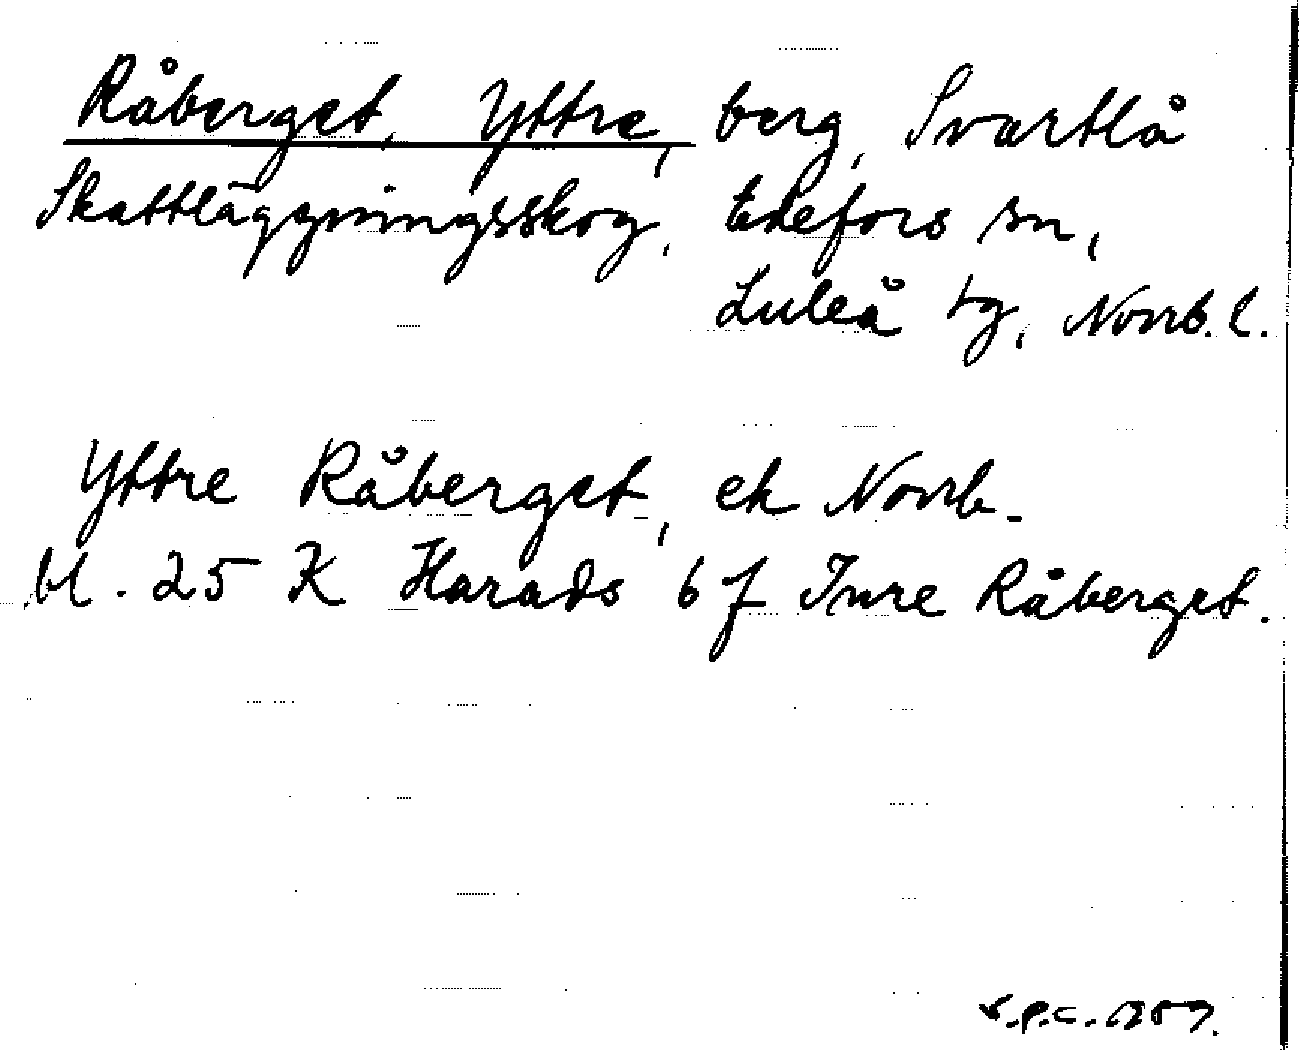 Råberget, Yttre, berg, Svartlå
Skattläggningsskog, Edefors sn,
Luleå tg, Norrb. l.
Yttre Råberget, ek Norrb.
bl. 25 K Harads 6 f Inre Råberget.